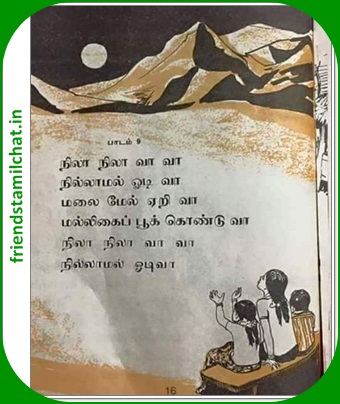 friendstamilchat.in
பாடம் 9
நிலா நிலா வா வா
நில்லாமல் ஓடி வா
மலை மேல் ஏறி வா
மல்லிகைப் பூக் கொண்டு வா
நிலா நிலா வா வா
நில்லாமல் ஓடிவா
16